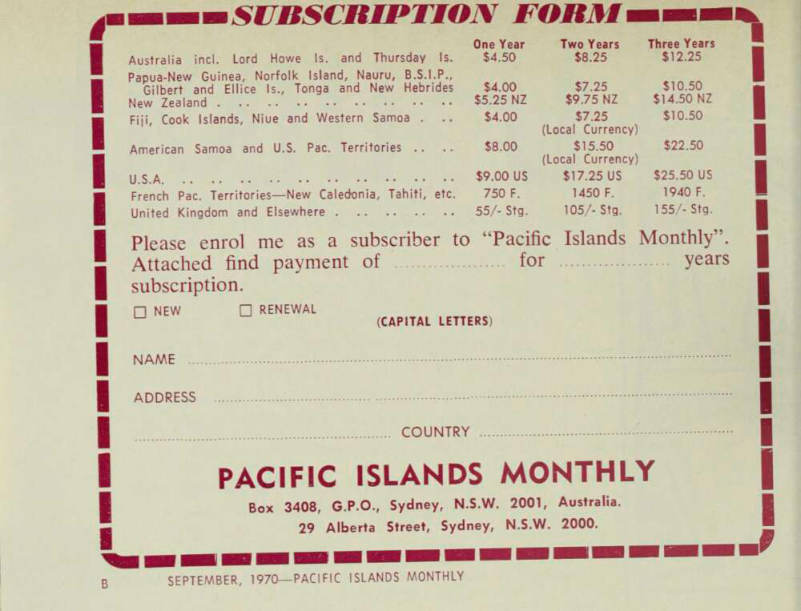 SUBSCRIPTION FORM
One Year Two Years Three Years
Australia incl. Lord Howe Is. and Thursday Is. $4.50 $8.25 $12.25
Papua-New Guinea, Norfolk Island, Nauru, B.S.I.P.,
Gilbert and Ellice Is., Tonga and New Hebrides $4.00 $7.25 $10.50
New Zealand . .. .. .. .. .. .. .. .. .. $5.25 NZ $9.75 NZ $14.50 NZ
Fiji, Cook Islands, Niue and Western Samoa . .. $4.00 $7.25 $10.50
(Local Currency)
American Samoa and U.S. Pac. Territories .. .. $8.00 $15.50 $22.50
(Local Currency)
U.S.A. .. .. .. .. .. .. .. .. .. .. .. $9.00 US $17.25 US $25.50 US
French Pac. Territories—New Caledonia, Tahiti, etc. 750 F. 1450 F. 1940 F.
United Kingdom and Elsewhere . .. .. .. .. .. 55/- Stg. 105/- Stg. 155/- Stg.
Please enrol me as a subscriber to “Pacific Islands Monthly”.
Attached find payment of .................... for .................... years
subscription.
☐ NEW ☐ RENEWAL
(CAPITAL LETTERS)
NAME ....................
ADDRESS ....................
.................... COUNTRY ....................
PACIFIC ISLANDS MONTHLY
Box 3408, G.P.O., Sydney, N.S.W. 2001, Australia.
29 Alberta Street, Sydney, N.S.W. 2000.
B SEPTEMBER, 1970—PACIFIC ISLANDS MONTHLY